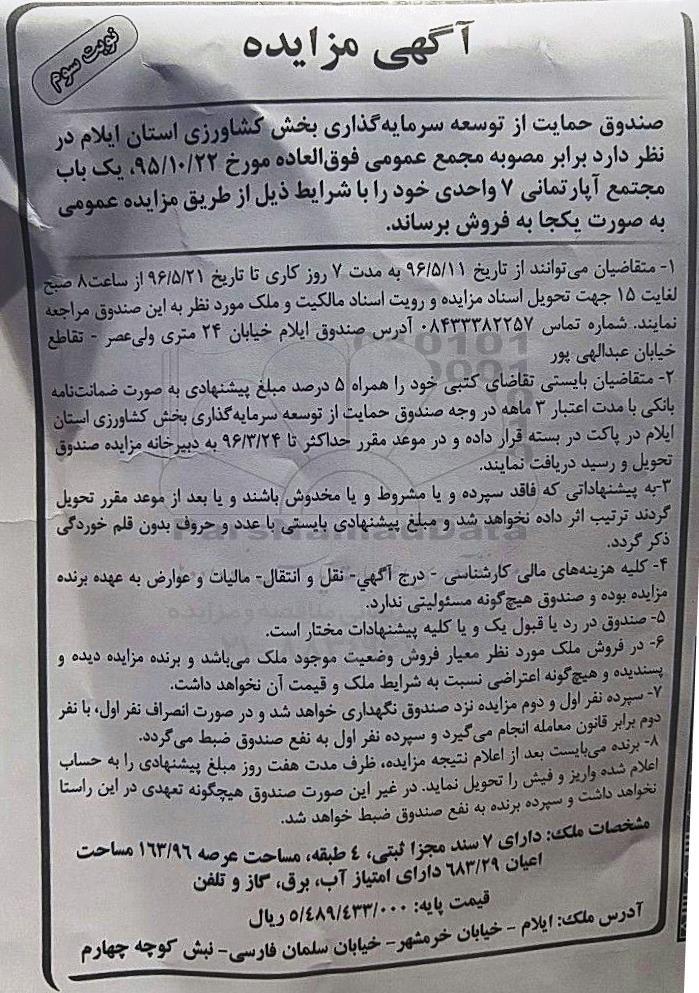 آگهی مزایده
نوبت سوم
صندوق حمایت از توسعه سرمایه‌گذاری بخش کشاورزی استان ایلام در
نظر دارد برابر مصوبه مجمع عمومی فوق‌العاده مورخ ۹۵/۱۰/۲۲، یک باب
مجتمع آپارتمانی ۷ واحدی خود را با شرایط ذیل از طریق مزایده عمومی
به صورت یکجا به فروش برساند.
۱- متقاضیان می‌توانند از تاریخ ۹۶/۵/۱۱ به مدت ۷ روز کاری تا تاریخ ۹۶/۵/۲۱ از ساعت۸ صبح
لغایت ۱۵ جهت تحویل اسناد مزایده و رویت اسناد مالکیت و ملک مورد نظر به این صندوق مراجعه
نمایند. شماره تماس ۰۸۴۳۳۳۸۲۲۵۷ آدرس صندوق ایلام خیابان ۲۴ متری ولی‌عصر - تقاطع
خیابان عبدالهی پور
۲- متقاضیان بایستی تقاضای کتبی خود را همراه ۵ درصد مبلغ پیشنهادی به صورت ضمانت‌نامه
بانکی با مدت اعتبار ۳ ماهه در وجه صندوق حمایت از توسعه سرمایه‌گذاری بخش کشاورزی استان
ایلام در پاکت در بسته قرار داده و در موعد مقرر حداکثر تا ۹۶/۳/۲۴ به دبیرخانه مزایده صندوق
تحویل و رسید دریافت نمایند.
۳-به پیشنهاداتی که فاقد سپرده و یا مشروط و یا مخدوش باشند و یا بعد از موعد مقرر تحویل
گردند ترتیب اثر داده نخواهد شد و مبلغ پیشنهادی بایستی با عدد و حروف بدون قلم خوردگی
ذکر گردد.
۴- کلیه هزینه‌های مالی کارشناسی - درج آگهی- نقل و انتقال- مالیات و عوارض به عهده برنده
مزایده بوده و صندوق هیچ‌گونه مسئولیتی ندارد.
۵- صندوق در رد یا قبول یک و یا کلیه پیشنهادات مختار است.
۶- در فروش ملک مورد نظر معیار فروش وضعیت موجود ملک می‌باشد و برنده مزایده دیده و
پسندیده و هیچ‌گونه اعتراضی نسبت به شرایط ملک و قیمت آن نخواهد داشت.
۷- سپرده نفر اول و دوم مزایده نزد صندوق نگهداری خواهد شد و در صورت انصراف نفر اول، با نفر
دوم برابر قانون معامله انجام می‌گیرد و سپرده نفر اول به نفع صندوق ضبط می‌گردد.
۸- برنده می‌بایست بعد از اعلام نتیجه مزایده، ظرف مدت هفت روز مبلغ پیشنهادی را به حساب
اعلام شده واریز و فیش را تحویل نماید. در غیر این صورت صندوق هیچگونه تعهدی در این راستا
نخواهد داشت و سپرده برنده به نفع صندوق ضبط خواهد شد.
مشخصات ملک: دارای ۷ سند مجزا ثبتی، ۴ طبقه، مساحت عرصه ۱۶۳/۹۶ مساحت
اعیان ۶۸۳/۲۹ دارای امتیاز آب، برق، گاز و تلفن
قیمت پایه: ۵/۴۸۹/۴۳۳/۰۰۰ ریال
آدرس ملک: ایلام - خیابان خرمشهر- خیابان سلمان فارسی- نبش کوچه چهارم
ParsNamadData